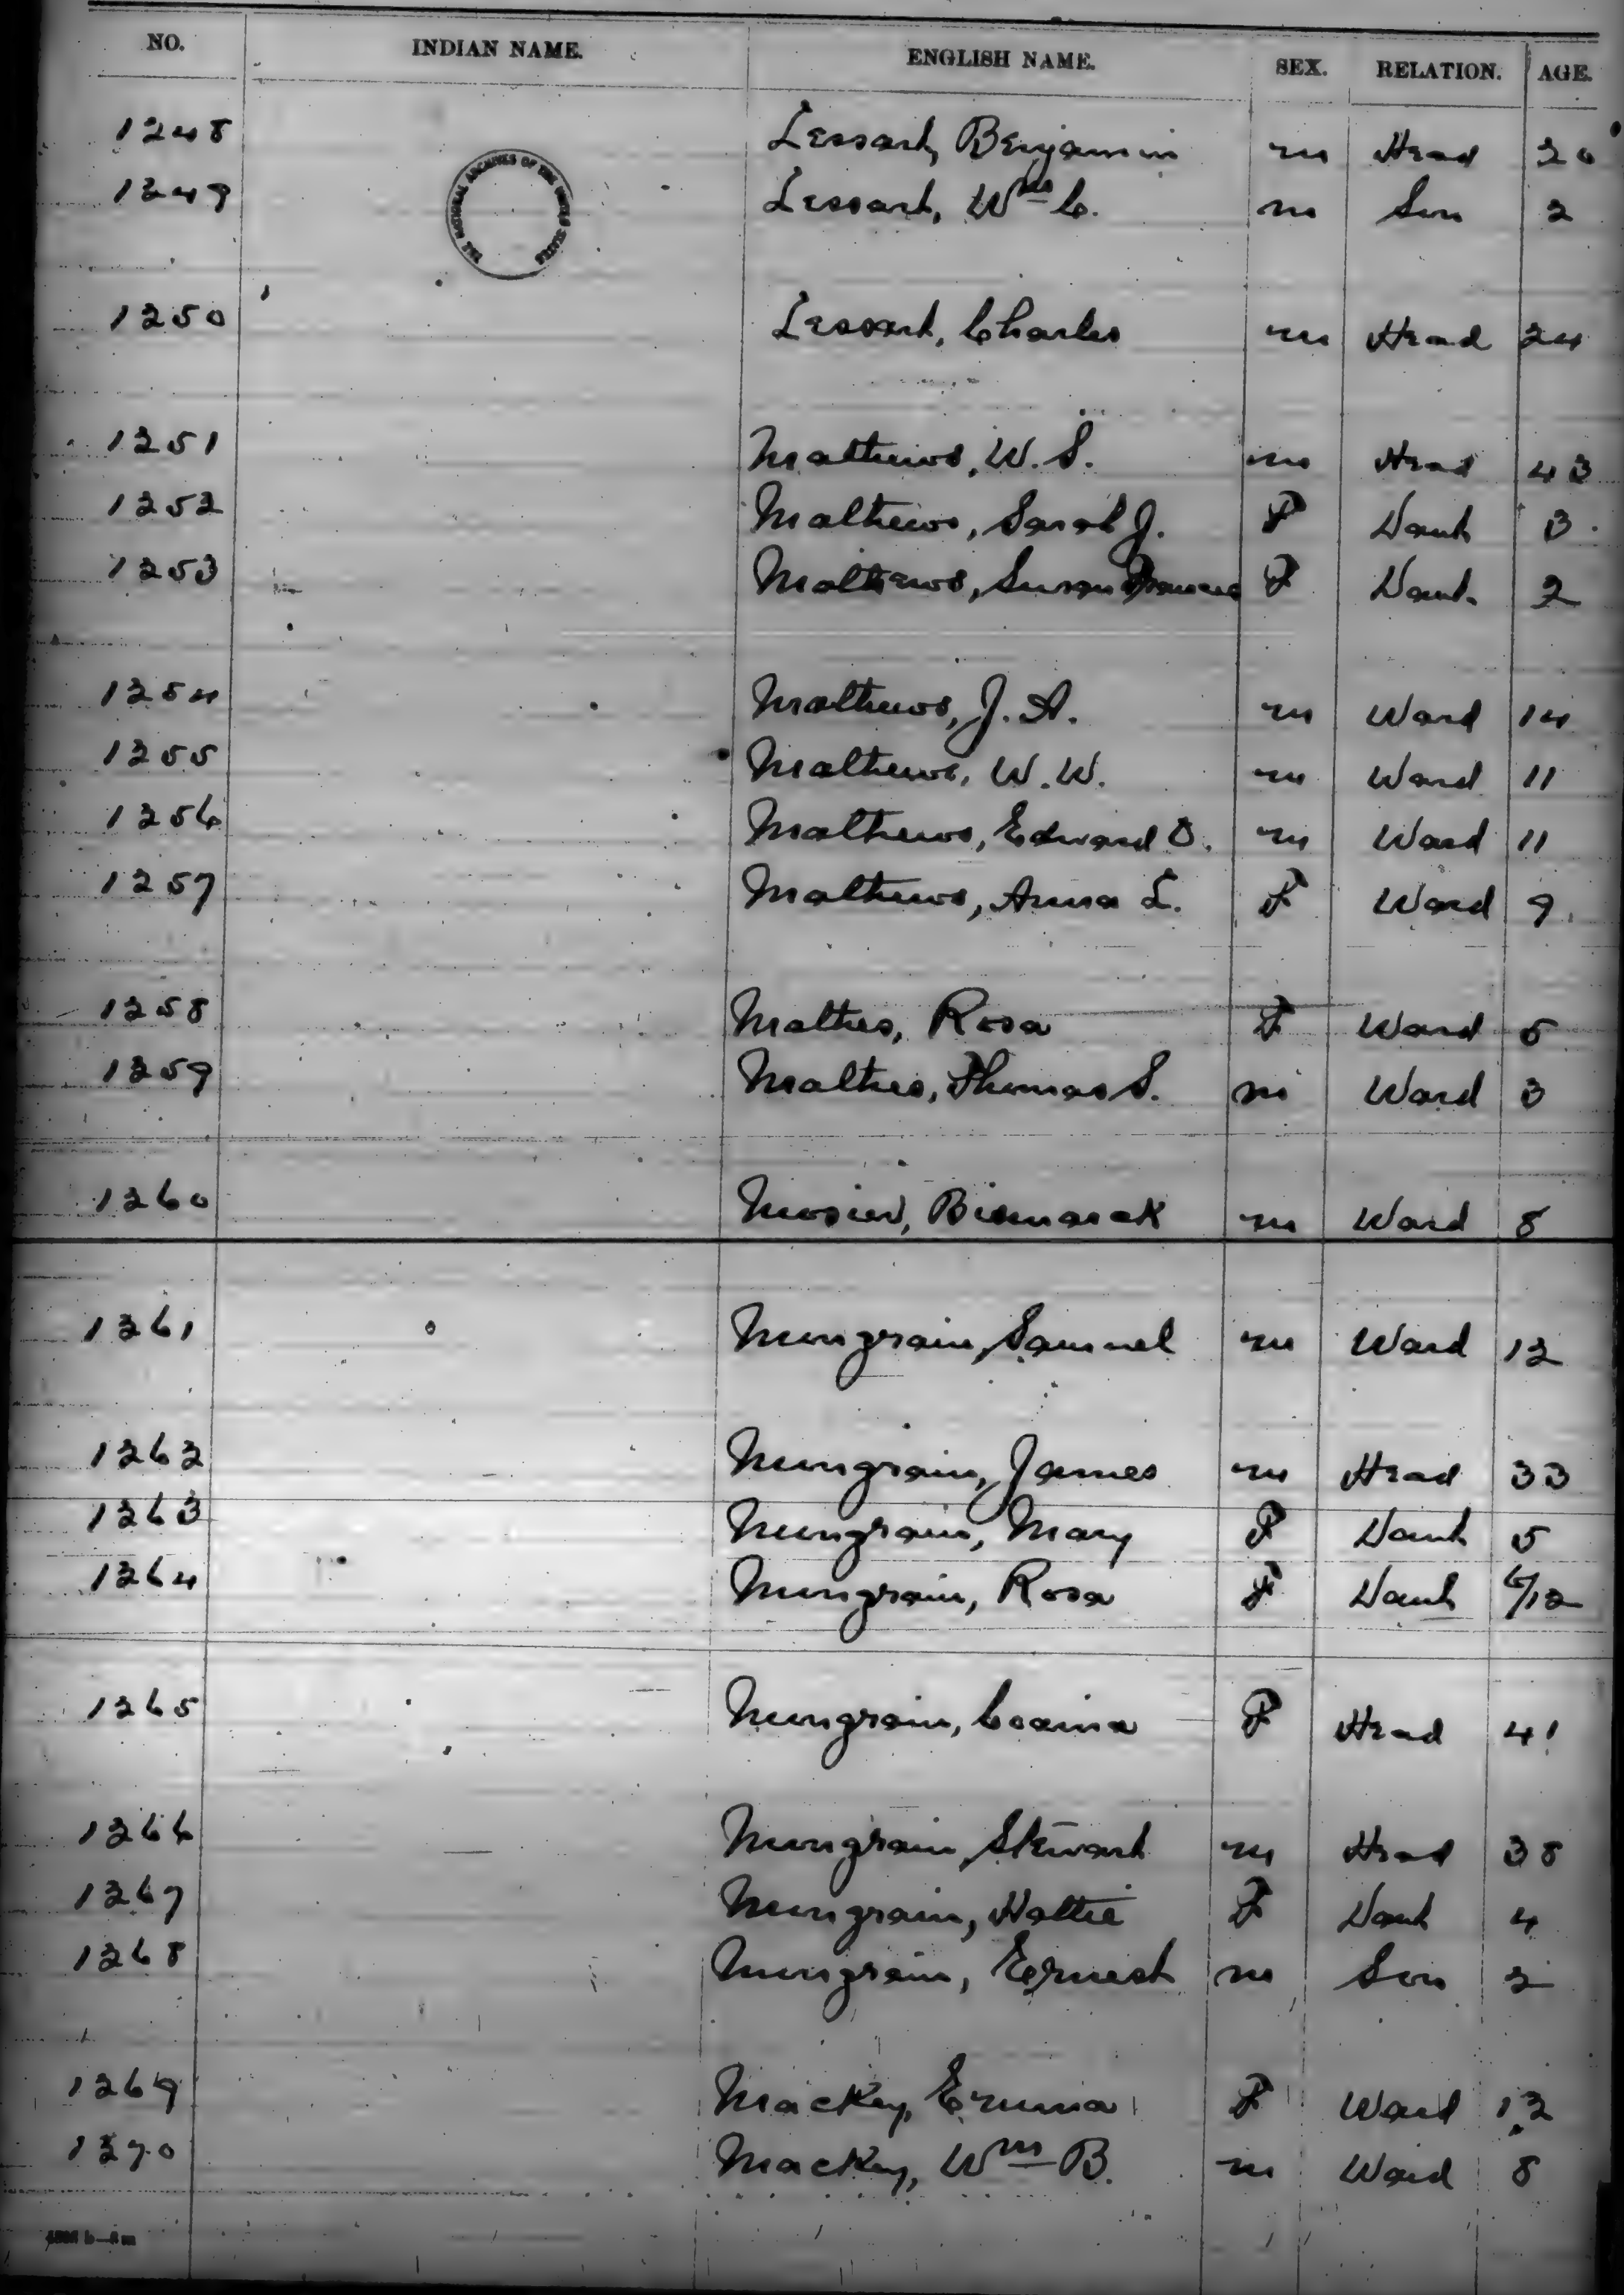 NO. INDIAN NAME. ENGLISH NAME. SEX. RELATION. AGE.
THE NATIONAL ARCHIVES OF THE UNITED STATES
1248 Lessart, Benjamin m Head 20
1249 Lessart, Wm C. m Son 2
1250 Lessart, Charles m Head 24
1251 Mathews, W. S. m Head 43
1252 Mathews, Sarah J. F Daut 3
1253 Mathews, Susan Frances F Daut. 2
1254 Mathews, J. A. m Ward 14
1255 Mathews, W. W. m Ward 11
1256 Mathews, Edward O. m Ward 11
1257 Mathews, Anna L. F Ward 9
1258 Mathes, Rosa F Ward 5
1259 Mathes, Thomas S. m Ward 3
1260 Mosier, Bismarck m Ward 8
1261 Mungrain, Samuel m Ward 12
1262 Mungrain, James m Head 33
1263 Mungrain, Mary F Daut 5
1264 Mungrain, Rosa F Daut 6/12
1265 Mungrain, F Head 41
1266 Mungrain, Stewart m Head 38
1267 Mungrain, Hattie F Daut 4
1268 Mungrain, Ernest m Son 2
1269 Mackey, Emma F Ward 12
1270 Mackey, Wm B. m Ward 8